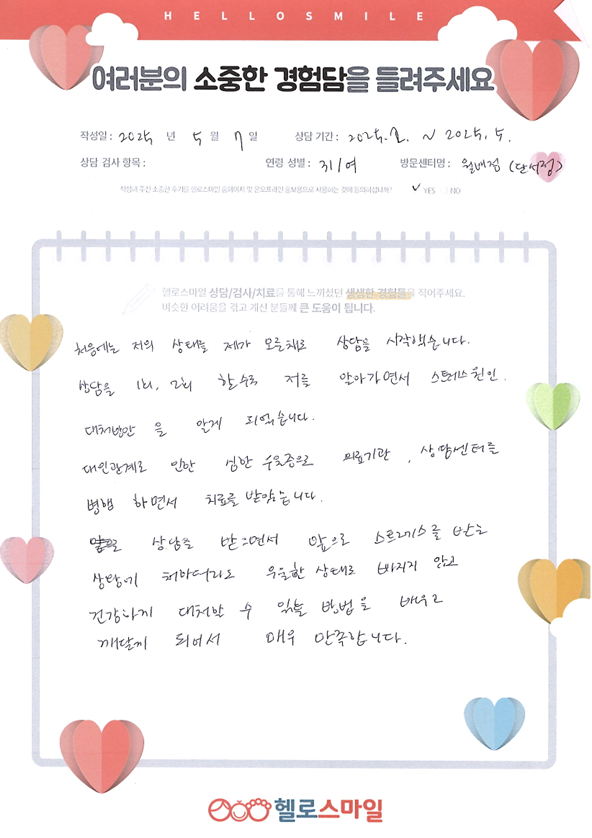 HELLOSMILE
여러분의 소중한 경험담을 들려주세요
작성일 : 2025 년 5 월 7 일 상담 기간 : 2025. 2. ~ 2025. 5.
상담 검사 항목 : 연령 성별 : 31/여 방문센터명 : 월배점 (단서정)
작성해 주신 소중한 후기를 헬로스마일 홈페이지 및 온오프라인 홍보용으로 사용하는 것에 동의하십니까? ✓ YES NO
헬로스마일 상담/검사/치료를 통해 느끼셨던 생생한 경험들을 적어주세요.
비슷한 어려움을 겪고 계신 분들께 큰 도움이 됩니다.
처음에는 저의 상태를 제가 모른채로 상담을 시작했습니다.
상담을 1회, 2회 할수록 저를 알아가면서 스트레스 원인.
대처방안을 알게 되었습니다.
대인관계로 인한 심한 우울증으로 의료기관, 상담센터를
병행 하면서 치료를 받았습니다.
상담을 받으면서 앞으로 스트레스를 받는
상황에 처하더라도 우울한 상태로 빠지지 않고
건강하게 대처할 수 있는 방법을 배우고
깨닫게 되어서 매우 만족합니다.
헬로스마일